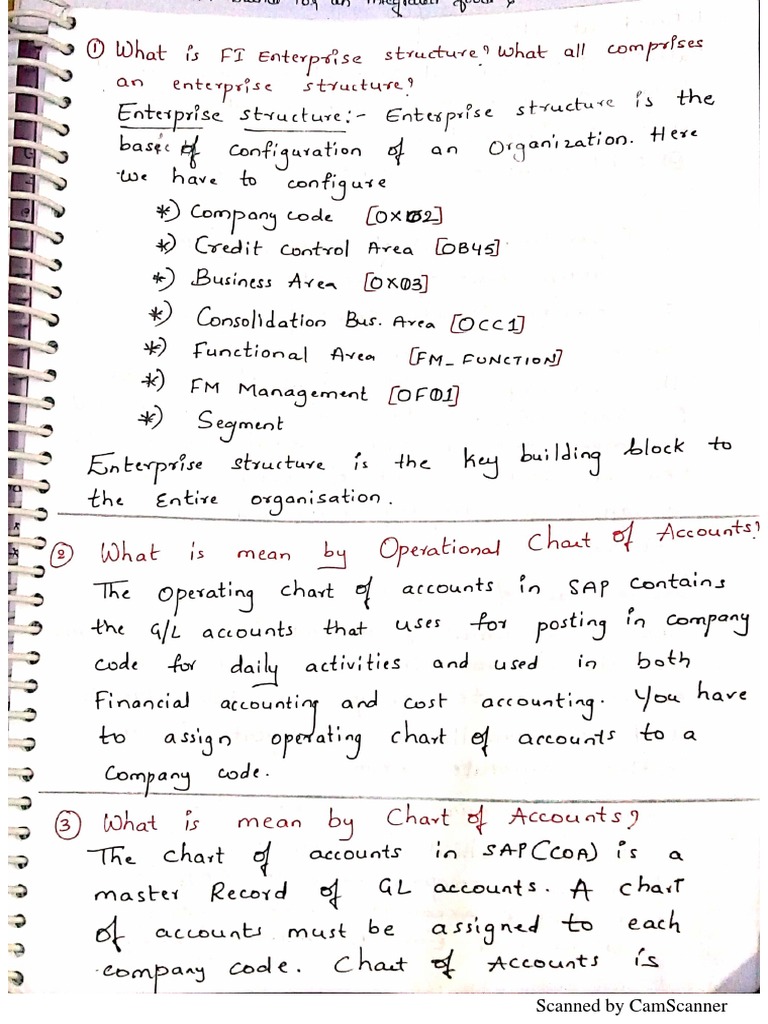 ① What is FI Enterprise structure? What all comprises
an enterprise structure?
Enterprise structure:- Enterprise structure is the
basic of configuration of an Organization. Here
we have to configure
*) Company code [OX02]
*) Credit control Area [OB45]
*) Business Area [OX03]
*) Consolidation Bus. Area [OCC1]
*) Functional Area [FM_FUNCTION]
*) FM Management [OF01]
*) Segment
Enterprise structure is the key building block to
the Entire organisation.
② What is mean by Operational Chart of Accounts?
The operating chart of accounts in SAP contains
the G/L accounts that uses for posting in company
code for daily activities and used in both
Financial accounting and cost accounting. You have
to assign operating chart of accounts to a
Company code.
③ What is mean by Chart of Accounts?
The chart of accounts in SAP(COA) is a
master Record of GL accounts. A chart
of accounts must be assigned to each
company code. Chart of Accounts is
Scanned by CamScanner